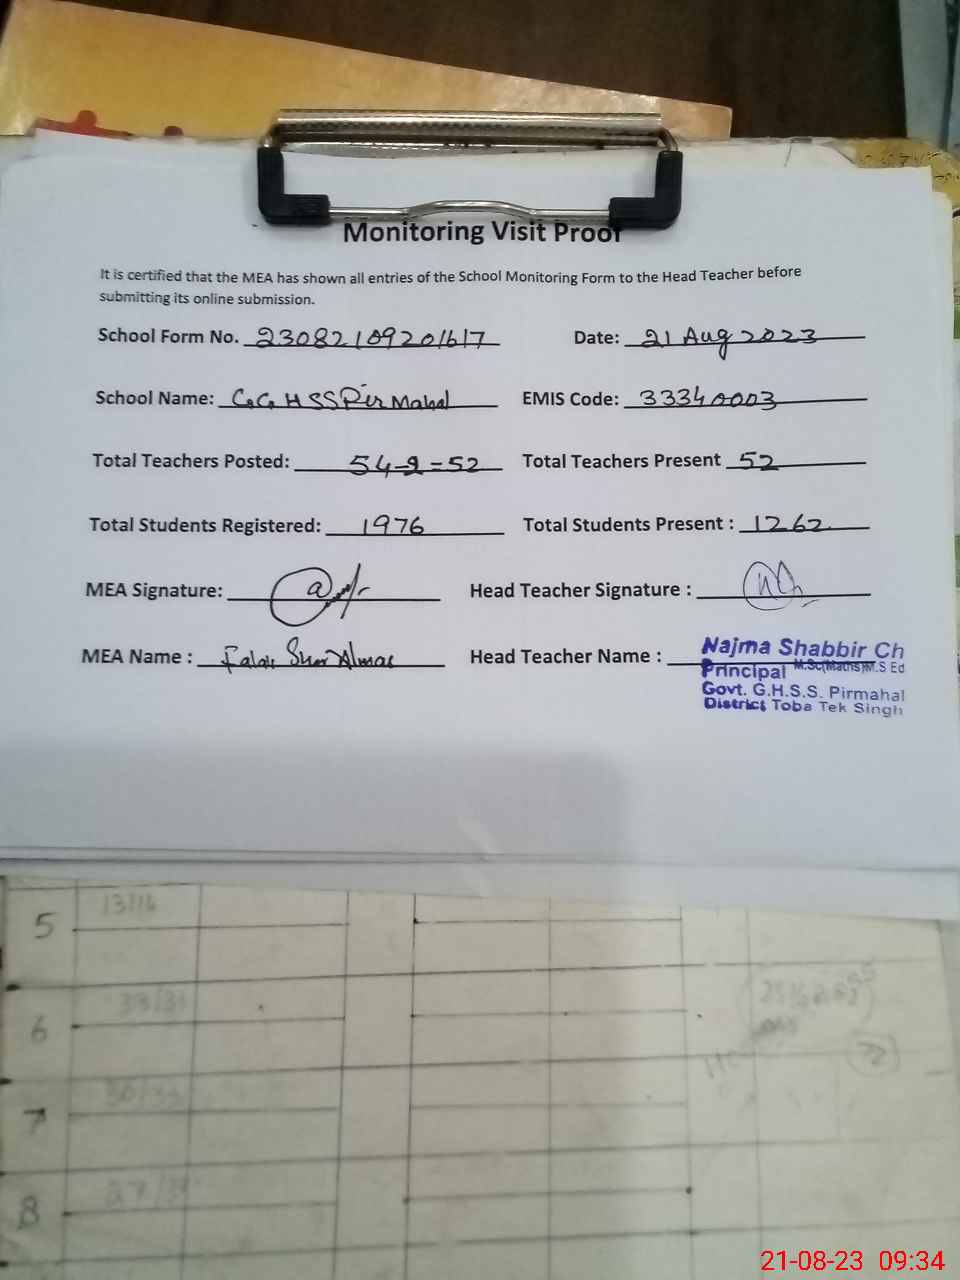 Monitoring Visit Proof
It is certified that the MEA has shown all entries of the School Monitoring Form to the Head Teacher before
submitting its online submission.
School Form No. 23082109201617 Date: 21 Aug 2023
School Name: G.G H SS Pir Mahal EMIS Code: 33340003
Total Teachers Posted: 54-2=52 Total Teachers Present 52
Total Students Registered: 1976 Total Students Present : 1262
MEA Signature: Head Teacher Signature :
MEA Name : Sher Almas Head Teacher Name :
Najma Shabbir Ch
Principal M.Sc(Maths)M.S Ed
Govt. G.H.S.S. Pirmahal
District Toba Tek Singh
5
6
7
8
21-08-23 09:34